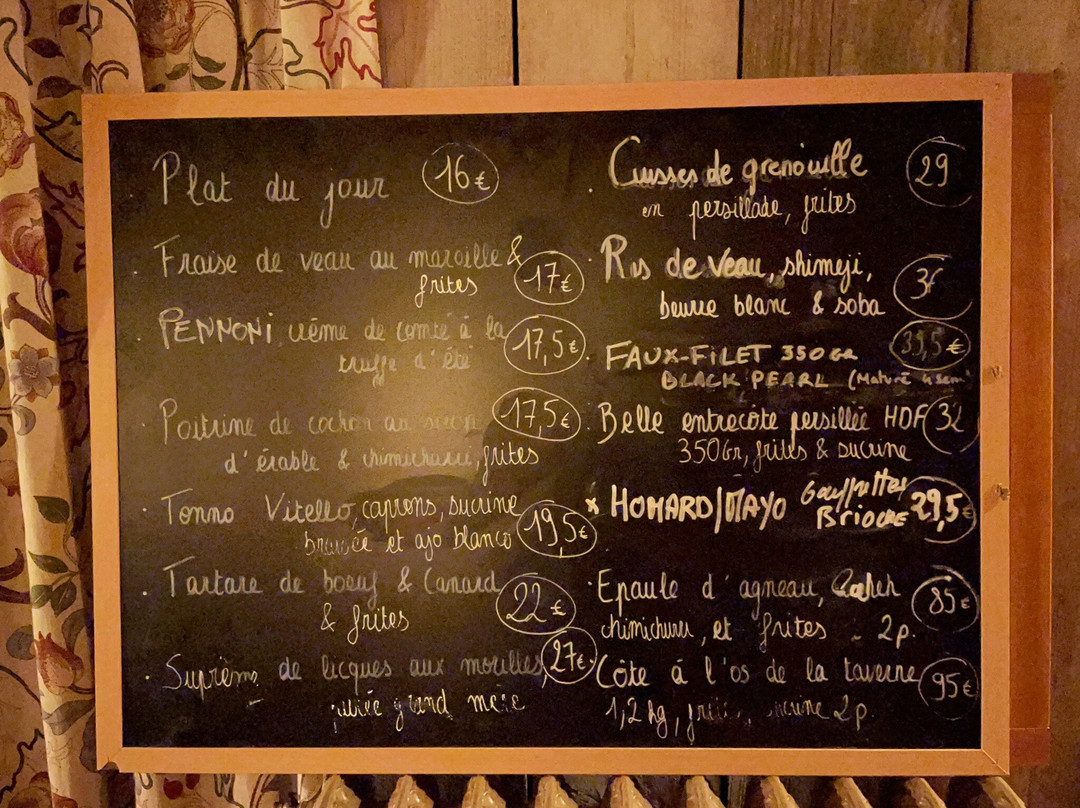 Plat du jour 16€
Fraise de veau au maroille &
frites 17€
PENNONI crème de comté à la
truffe d'été 17,5€
Poitrine de cochon au sirop 17,5€
d'érable & chimichurri, frites
Tonno Vitello, caprons, sucrine
braisée et ajo blanco 19,5€
Tartare de boeuf & Canard
& frites 22€
Suprême de licques aux morilles, 27€
purée grand mère
Cuisses de grenouille 29
en persillade, frites
Ris de veau, shimeji,
beurre blanc & soba
FAUX-FILET 350GR
BLACK PEARL (Maturé 4 sem
Belle entrecôte persillée HDF
350Gr, frites & sucrine
x HOMARD/MAYO Gauffrettes
BRIOCHE 29,5€
Epaule d'agneau, 85€
chimichurri, et frites - 2p.
Côte à l'os de la taverne 95€
1,2 kg, frites, sucrine 2p.